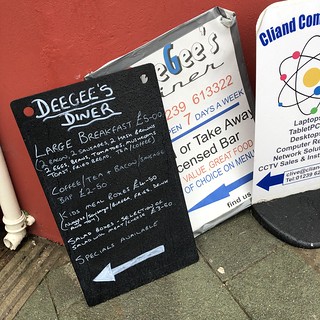 DEEGEE'S
DINER
LARGE BREAKFAST £5.00
(2 BACON, 2 SAUSAGES, 2 HASH BROWNS
2 EGGS, BEANS, TOMATOES, MUSHROOMS
TOAST, FRIED BREAD, TEA/COFFEE)
COFFEE/TEA + BACON/SAUSAGE
BAP £2.50
KIDS MENU BOXES
SALAD BOXES - SELECTION OF
SALAD WITH
SPECIALS AVAILABLE
DeeGee's
Diner
239 613322
OPEN 7 DAYS A WEEK
or Take Away
censed Bar
VALUE GREAT FOOD
OF CHOICE ON MENU
find us
Cliand Com
Laptops
TabletPC
Desktop
Computer Re
Network Solut
CCTV Sales & Inst
clive@cliand
Tel: 01239 62